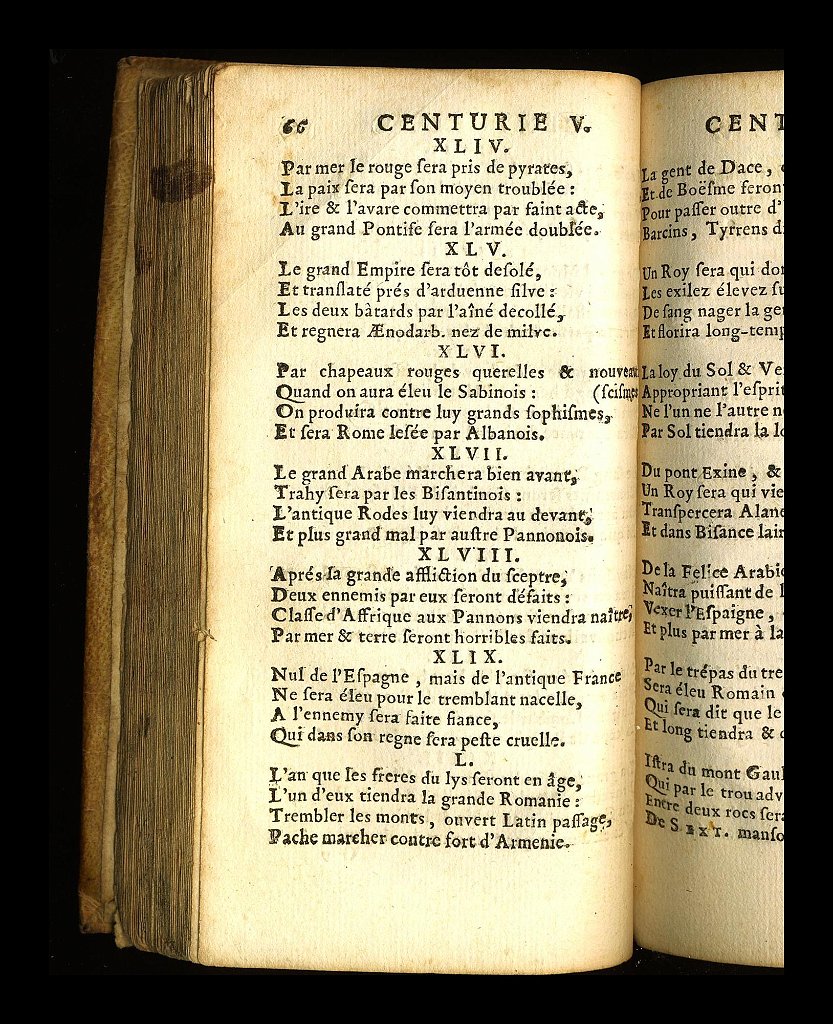 66 CENTURIE V.
XLIV.
Par mer le rouge ſera pris de pyrates,
La paix ſera par ſon moyen troublée :
L'ire & l'avare commettra par ſaint acte,
Au grand Pontife ſera l'armée doublée.
XLV.
Le grand Empire ſera tôt deſolé,
Et tranſlaté prés d'arduenne ſilve :
Les deux bâtards par l'aîné decollé,
Et regnera Ænodarb. nez de milve.
XLVI.
Par chapeaux rouges querelles & nouveau
Quand on aura éleu le Sabinois : (ſciſmes
On produira contre luy grands ſophiſmes,
Et ſera Rome leſée par Albanois.
XLVII.
Le grand Arabe marchera bien avant,
Trahy ſera par les Biſantinois :
L'antique Rodes luy viendra au devant,
Et plus grand mal par auſtre Pannonois.
XLVIII.
Aprés la grande affliction du ſceptre,
Deux ennemis par eux ſeront défaits :
Claſſe d'Affrique aux Pannons viendra naître,
Par mer & terre ſeront horribles faits.
XLIX.
Nul de l'Eſpagne, mais de l'antique France
Ne ſera éleu pour le tremblant nacelle,
A l'ennemy ſera faite fiance,
Qui dans ſon regne ſera peſte cruelle.
L.
L'an que les freres du lys ſeront en âge,
L'un d'eux tiendra la grande Romanie :
Trembler les monts, ouvert Latin paſſage,
Pache marcher contre fort d'Armenie.
CENT
La gent de Dace,
Et de Boëſme feron
Pour paſſer outre d'
Barcins, Tyrrens d
Un Roy ſera qui don
Les exilez élevez ſu
De ſang nager la ge
Et florira long-temp
La loy du Sol & Ve
Appropriant l'eſprit
Ne l'un ne l'autre n
Par Sol tiendra la l
Du pont Exine, &
Un Roy ſera qui vie
Tranſpercera Alane
Et dans Biſance lair
De la Felice Arabi
Naîtra puiſſant de l
Vexer l'Eſpaigne,
Et plus par mer à la
Par le trépas du tre
Sera éleu Romain
Qui ſera dit que le
Et long tiendra &
Iſtra du mont Gaul
Qui par le trou adv
Entre deux rocs ſera
De SEXT. manſo